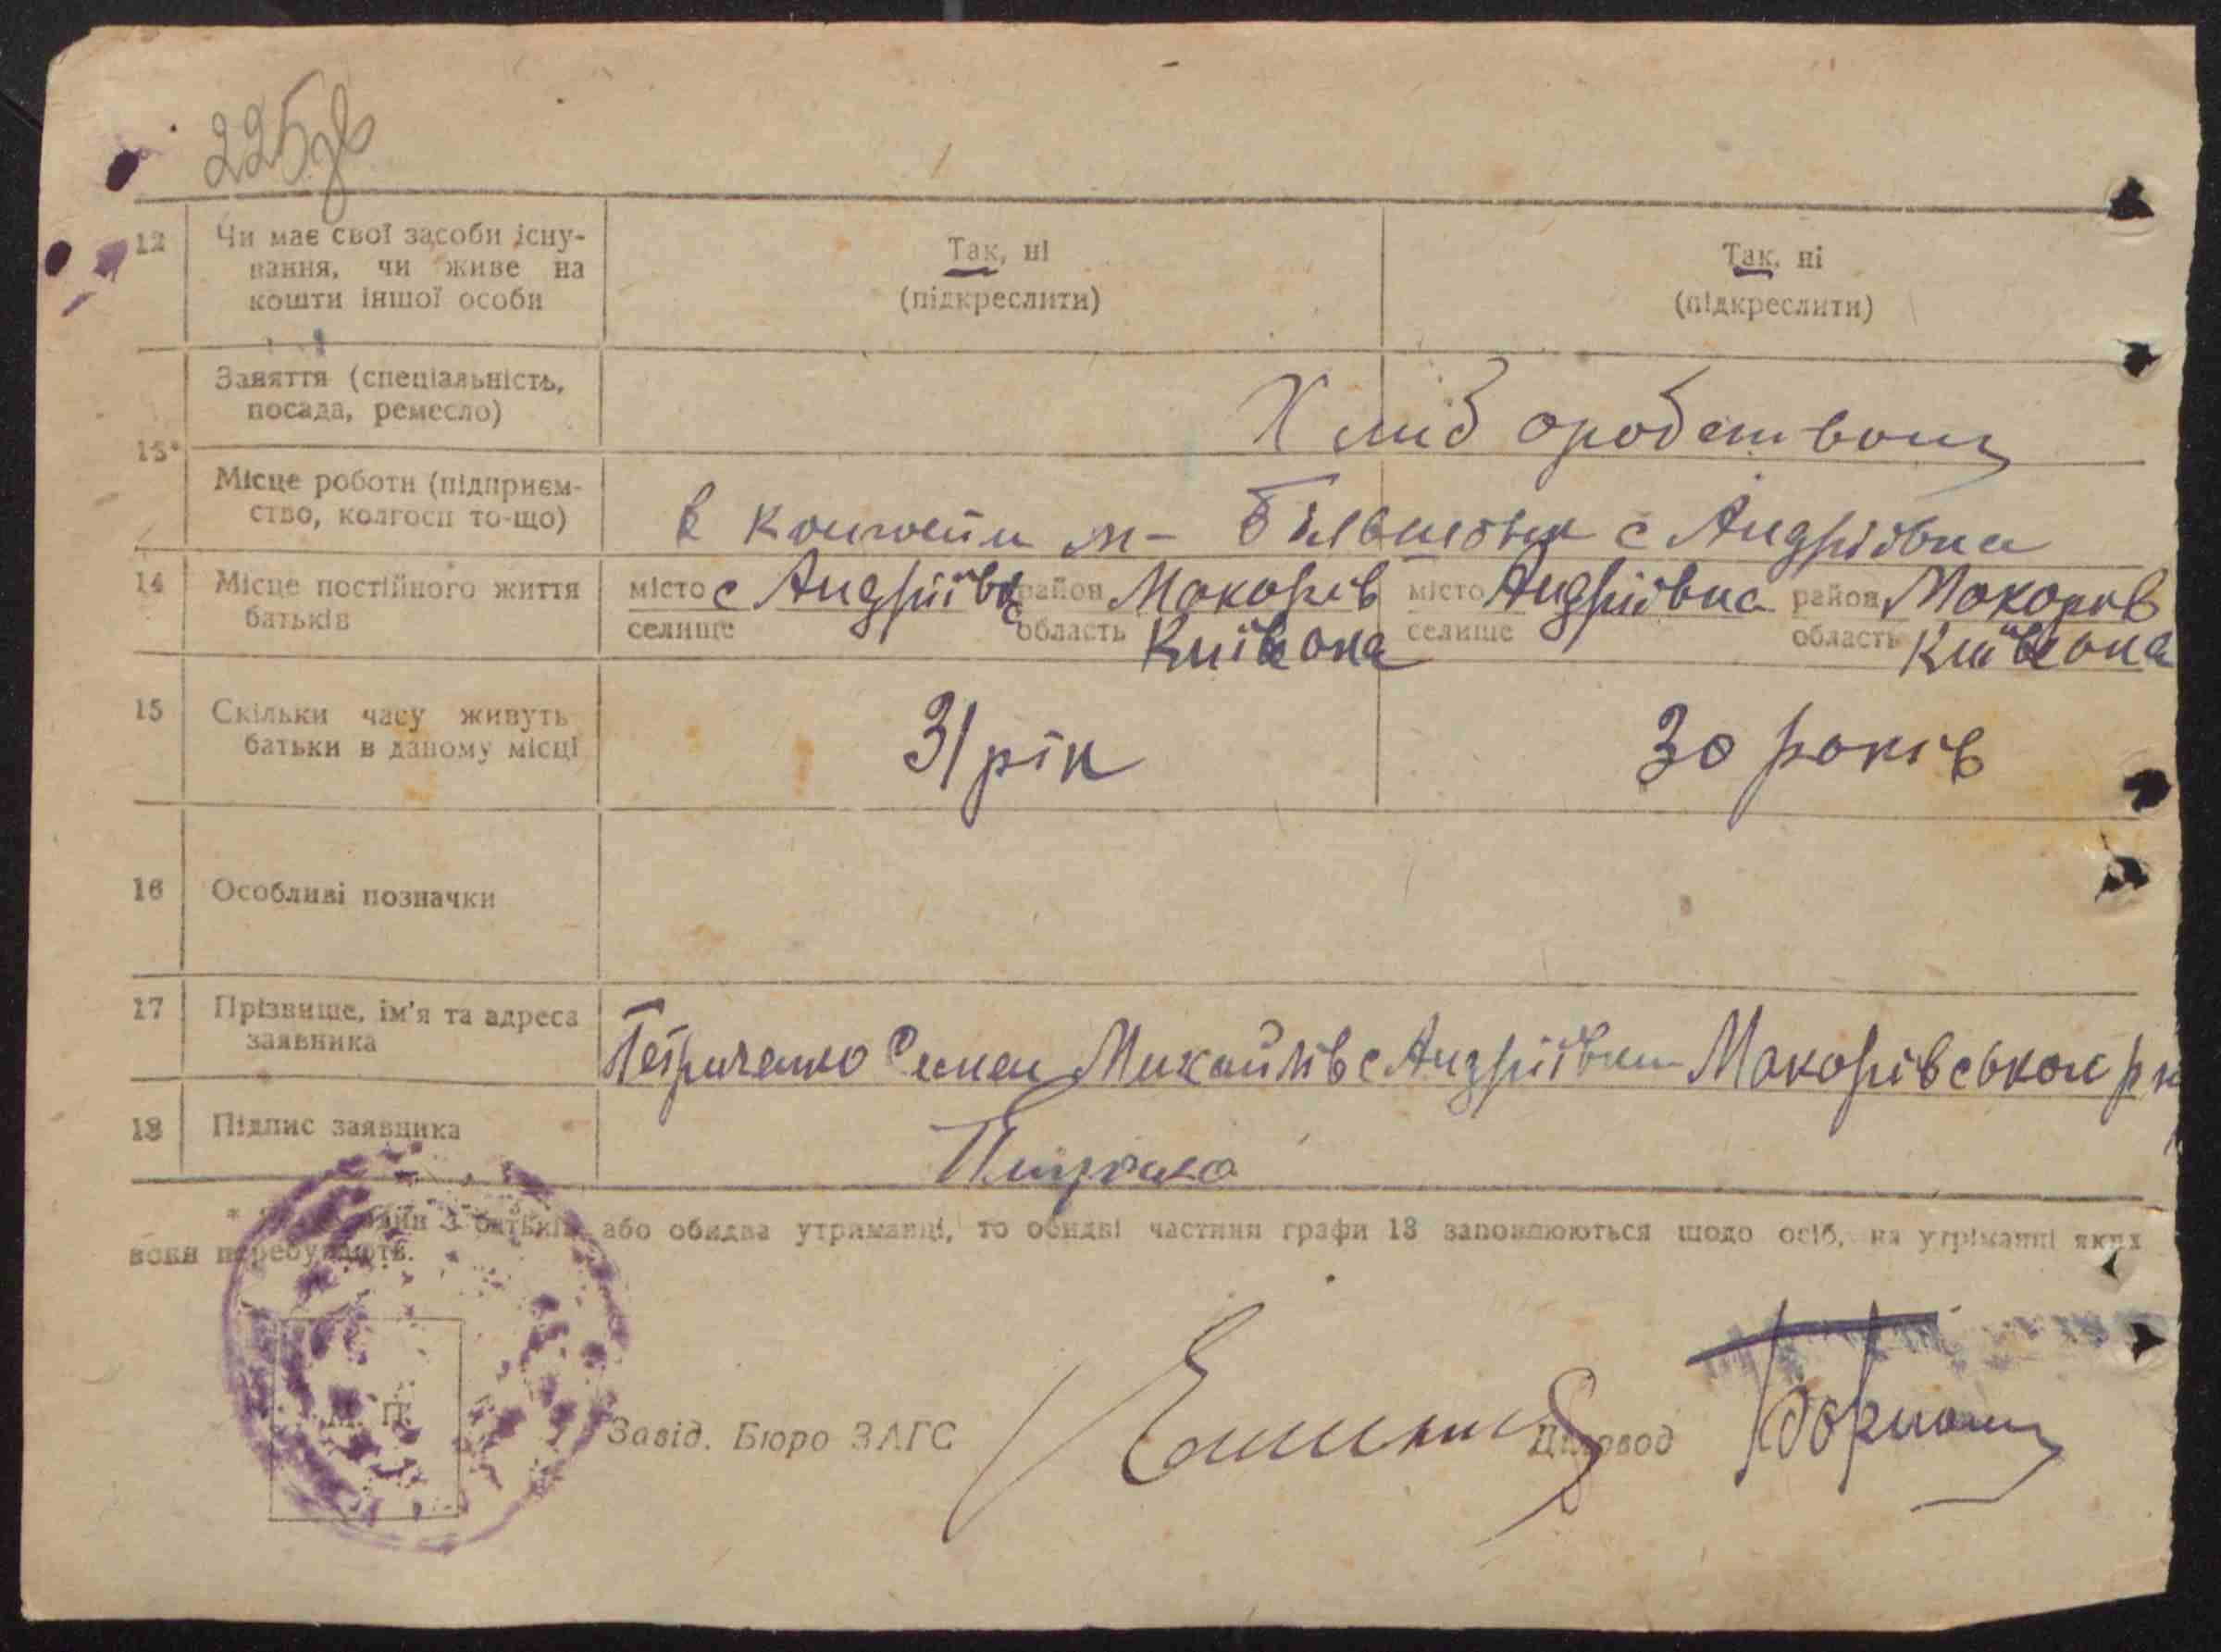 225 зв
12 Чи має свої засоби існу-
вання, чи живе на
кошти іншої особи
Так, ні
(підкреслити)
Так, ні
(підкреслити)
13*
Заняття (спеціальність,
посада, ремесло)
Хлиборобством
Місце роботи (підприєм-
ство, колгосп то-що)
в с Андріівка
14 Місце постійного життя
батьків
місто с Андріівка район Макарів
селище область Київска
місто Андріівка район Макарів
селище область Київска
15 Скільки часу живуть
батьки в даному місці
31 рік
30 років
16 Особливі позначки
17 Прізвище, ім'я та адреса
заявника
Петриченко Семен Михайлів с Андріівки Макорівського р н
18 Підпис заявника
* один з батьків або обидва утриманці, то обидві частини графи 13 заповнюються щодо осіб, на утріманні яких
вони перебувають.
М. П.
Завід. Бюро ЗАГС
Діловод